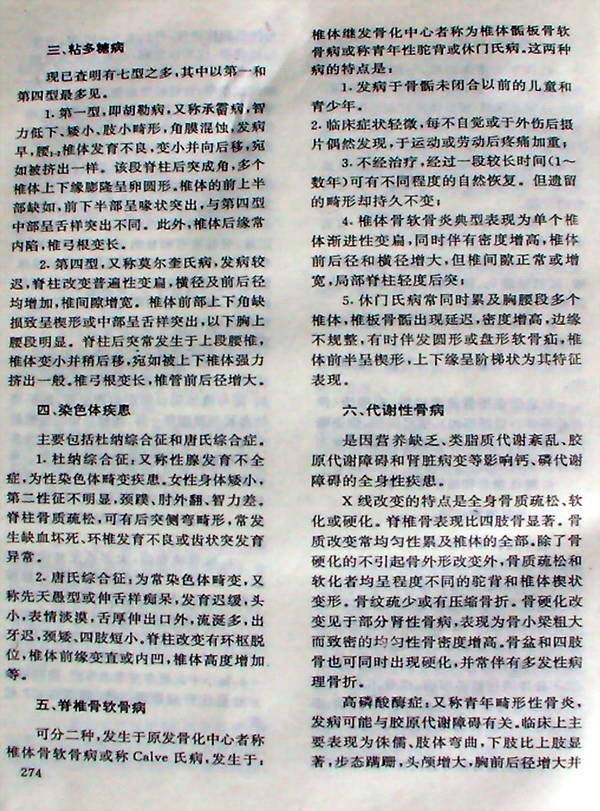 三、粘多糖病
现已查明有七型之多，其中以第一和
第四型最多见。
1. 第一型，即胡勒病，又称承霤病，智
力低下、矮小、肢小畸形，角膜混蚀，发病
早，腰₁₋₂椎体发育不良，变小并向后移，宛
如被挤出一样。该段脊柱后突成角，多个
椎体上下缘膨隆呈卵圆形。椎体的前上半
部缺如，前下半部呈喙状突出，与第四型
中部呈舌样突出不同。此外，椎体后缘常
内陷，椎弓根变长。
2. 第四型，又称莫尔奎氏病，发病较
迟，脊柱改变普遍性变扁，横径及前后径
均增加，椎间隙增宽。椎体前部上下角缺
损致呈楔形或中部呈舌样突出，以下胸上
腰段明显。脊柱后突常发生于上段腰椎，
椎体变小并稍后移，宛如被上下椎体强力
挤出一般。椎弓根变长，椎管前后径增大。
四、染色体疾患
主要包括杜纳综合征和唐氏综合症。
1. 杜纳综合征：又称性腺发育不全
症，为性染色体畸变疾患。女性身体矮小，
第二性征不明显，颈蹼、肘外翻、智力差。
脊柱骨质疏松，可有后突侧弯畸形，常发
生缺血坏死、环椎发育不良或齿状突发育
异常。
2. 唐氏综合征：为常染色体畸变，又
称先天愚型或伸舌样痴呆，发育迟缓，头
小，表情淡漠，舌厚伸出口外，流涎多，出
牙迟，颈矮、四肢短小。脊柱改变有环枢脱
位，椎体前缘变直或内凹，椎体高度增加
等。
五、脊椎骨软骨病
可分二种，发生于原发骨化中心者称
椎体骨软骨病或称 Calve 氏病，发生于：
274
椎体继发骨化中心者称为椎体骺板骨软
骨病或称青年性驼背或休门氏病。这两种
病的特点是：
1. 发病于骨骺未闭合以前的儿童和
青少年。
2. 临床症状轻微，每不自觉或于外伤后摄
片偶然发现，于运动或劳动后疼痛加重；
3. 不经治疗，经过一段较长时间(1～
数年)可有不同程度的自然恢复。但遗留
的畸形却持久不变；
4. 椎体骨软骨炎典型表现为单个椎
体渐进性变扁，同时伴有密度增高，椎体
前后径和横径增大，但椎间隙正常或增
宽，局部脊柱轻度后突；
5. 休门氏病常同时累及胸腰段多个
椎体，椎板骨骺出现延迟，密度增高，边缘
不规整，有时伴发圆形或盘形软骨疝，椎
体前半呈楔形，上下缘呈阶梯状为其特征
表现。
六、代谢性骨病
是因营养缺乏、类脂质代谢紊乱、胶
原代谢障碍和肾脏病变等影响钙、磷代谢
障碍的全身性疾患。
X 线改变的特点是全身骨质疏松、软
化或硬化。脊椎骨表现比四肢骨显著。骨
质改变常均匀性累及椎体的全部。除了骨
硬化的不引起骨外形改变外，骨质疏松和
软化者均呈程度不同的驼背和椎体楔状
变形。骨纹疏少或有压缩骨折。骨硬化改
变见于部分肾性骨病，表现为骨小梁粗大
而致密的均匀性骨密度增高。骨盆和四肢
骨也可同时出现硬化，并常伴有多发性病
理骨折。
高磷酸酶症：又称青年畸形性骨炎，
发病可能与胶原代谢障碍有关。临床上主
要表现为侏儒、肢体弯曲，下肢比上肢显
著，步态蹒跚，头颅增大，胸前后径增大并